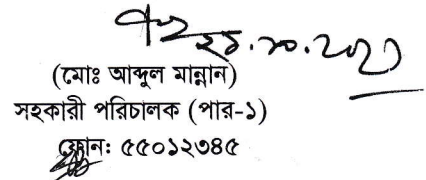 ২১.১০.২০২১
(মোঃ আব্দুল মান্নান)
সহকারী পরিচালক (পার-১)
ফোন: ৫৫০১২৩৪৫